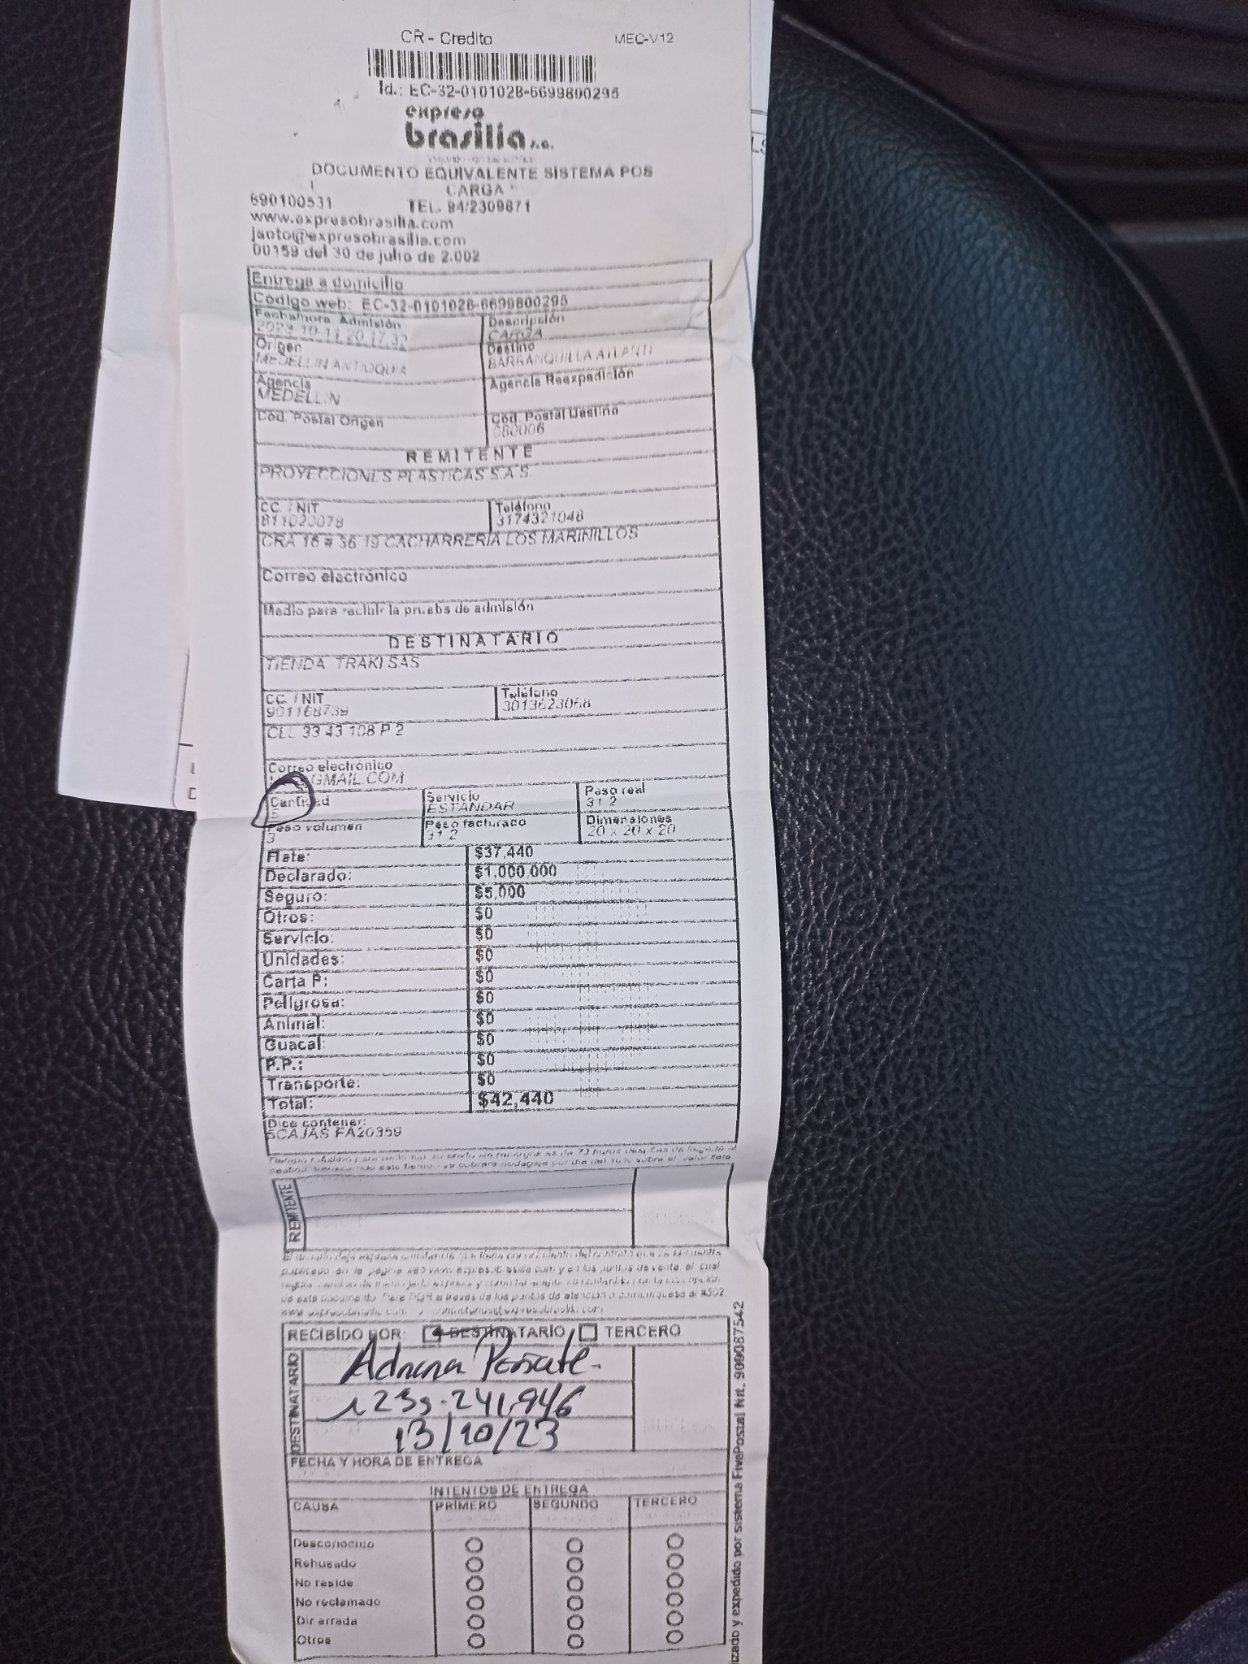 CR - Credito MEC-V12
Id.: EC-32-0101028-6699800295
expreso
brasilia s.a.
DOCUMENTO EQUIVALENTE SISTEMA POS
CARGA
890100531 TEL. 94/2309871
www.expresobrasilia.com
jsoto@expresobrasilia.com
00159 del 30 de julio de 2.002
Entrega a domicilio
Código web: EC-32-0101028-6699800295
Fecha/hora Admisión Descripción
2023-10-11 20:17:32 CARGA
Origen Destino
MEDELLIN ANTIOQUIA BARRANQUILLA ATLANTI
Agencia Agencia Reexpedición
MEDELLIN
Cod. Postal Origen Cod. Postal Destino
080006
REMITENTE
PROYECCIONES PLASTICAS S.A.S
CC. / NIT Teléfono
811020078 3174321048
CRA 16 # 36 19 CACHARRERIA LOS MARINILLOS
Correo electrónico
Medio para recibir la prueba de admisión
DESTINATARIO
TIENDA TRAKI SAS
CC. / NIT Teléfono
901168739 3013623068
CLL 33 43 108 P 2
Correo electrónico
GMAIL.COM
Cantidad Servicio Peso real
ESTANDAR 31.2
Peso volumen Peso facturado Dimensiones
3 31.2 20 x 20 x 20
Flete: $37,440
Declarado: $1,000,000
Seguro: $5,000
Otros: $0
Servicio: $0
Unidades: $0
Carta P: $0
Peligrosa: $0
Animal: $0
Guacal: $0
P.P.: $0
Transporte: $0
Total: $42,440
Dice contener:
5CAJAS FA20359
REMITENTE
RECIBIDO POR: DESTINATARIO TERCERO
DESTINATARIO
Adriana Peñate.
1239.241.946
13/10/23
FECHA Y HORA DE ENTREGA
INTENTOS DE ENTREGA
CAUSA PRIMERO SEGUNDO TERCERO
Desconocido
Rehusado
No reside
No reclamado
Dir errada
Otros
izado y expedido por sistema FivePostal Nit. 900087542